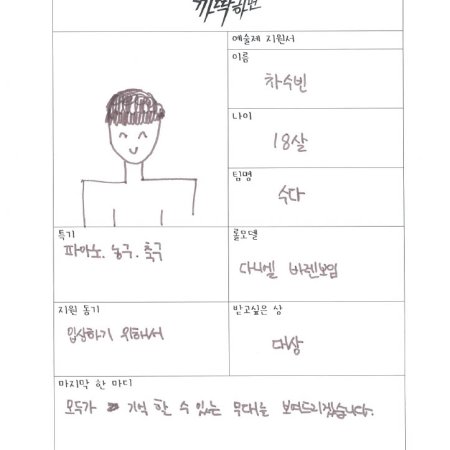 까딱하면
예술제 지원서
이름
차수빈
나이
18살
팀명
수다
특기
피아노, 농구, 축구
롤모델
다니엘 바렌보임
지원 동기
입상하기 위해서
받고싶은 상
대상
마지막 한 마디
모두가 기억 할 수 있는 무대를 보여드리겠습니다.